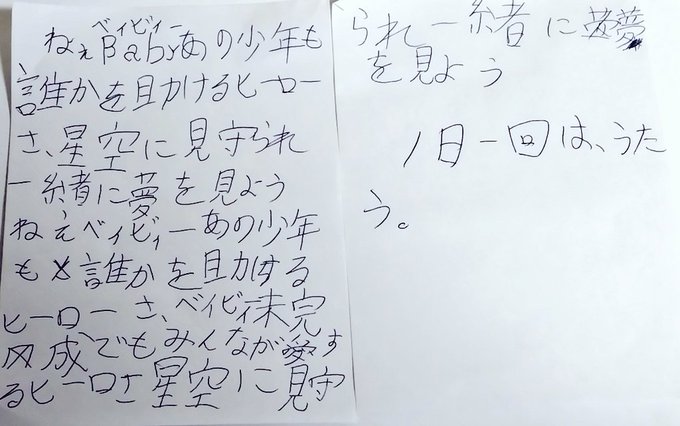 ベイビィー
ねぇBabyあの少年も
誰かを助けるヒーロー
さ、星空に見守られ
一緒に夢を見よう
ねぇベイビィーあの少年
も誰かを助する
ヒーローさ、ベイビィ未完
成でもみんなが愛す
るヒーロさ星空に見守
られ一緒に夢
を見よう
1日一回は、うた
う。